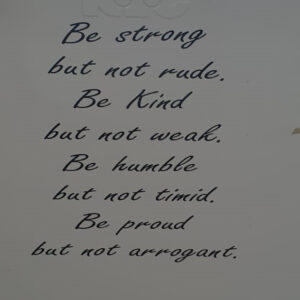 Be strong
but not rude.
Be Kind
but not weak.
Be humble
but not timid.
Be proud
but not arrogant.